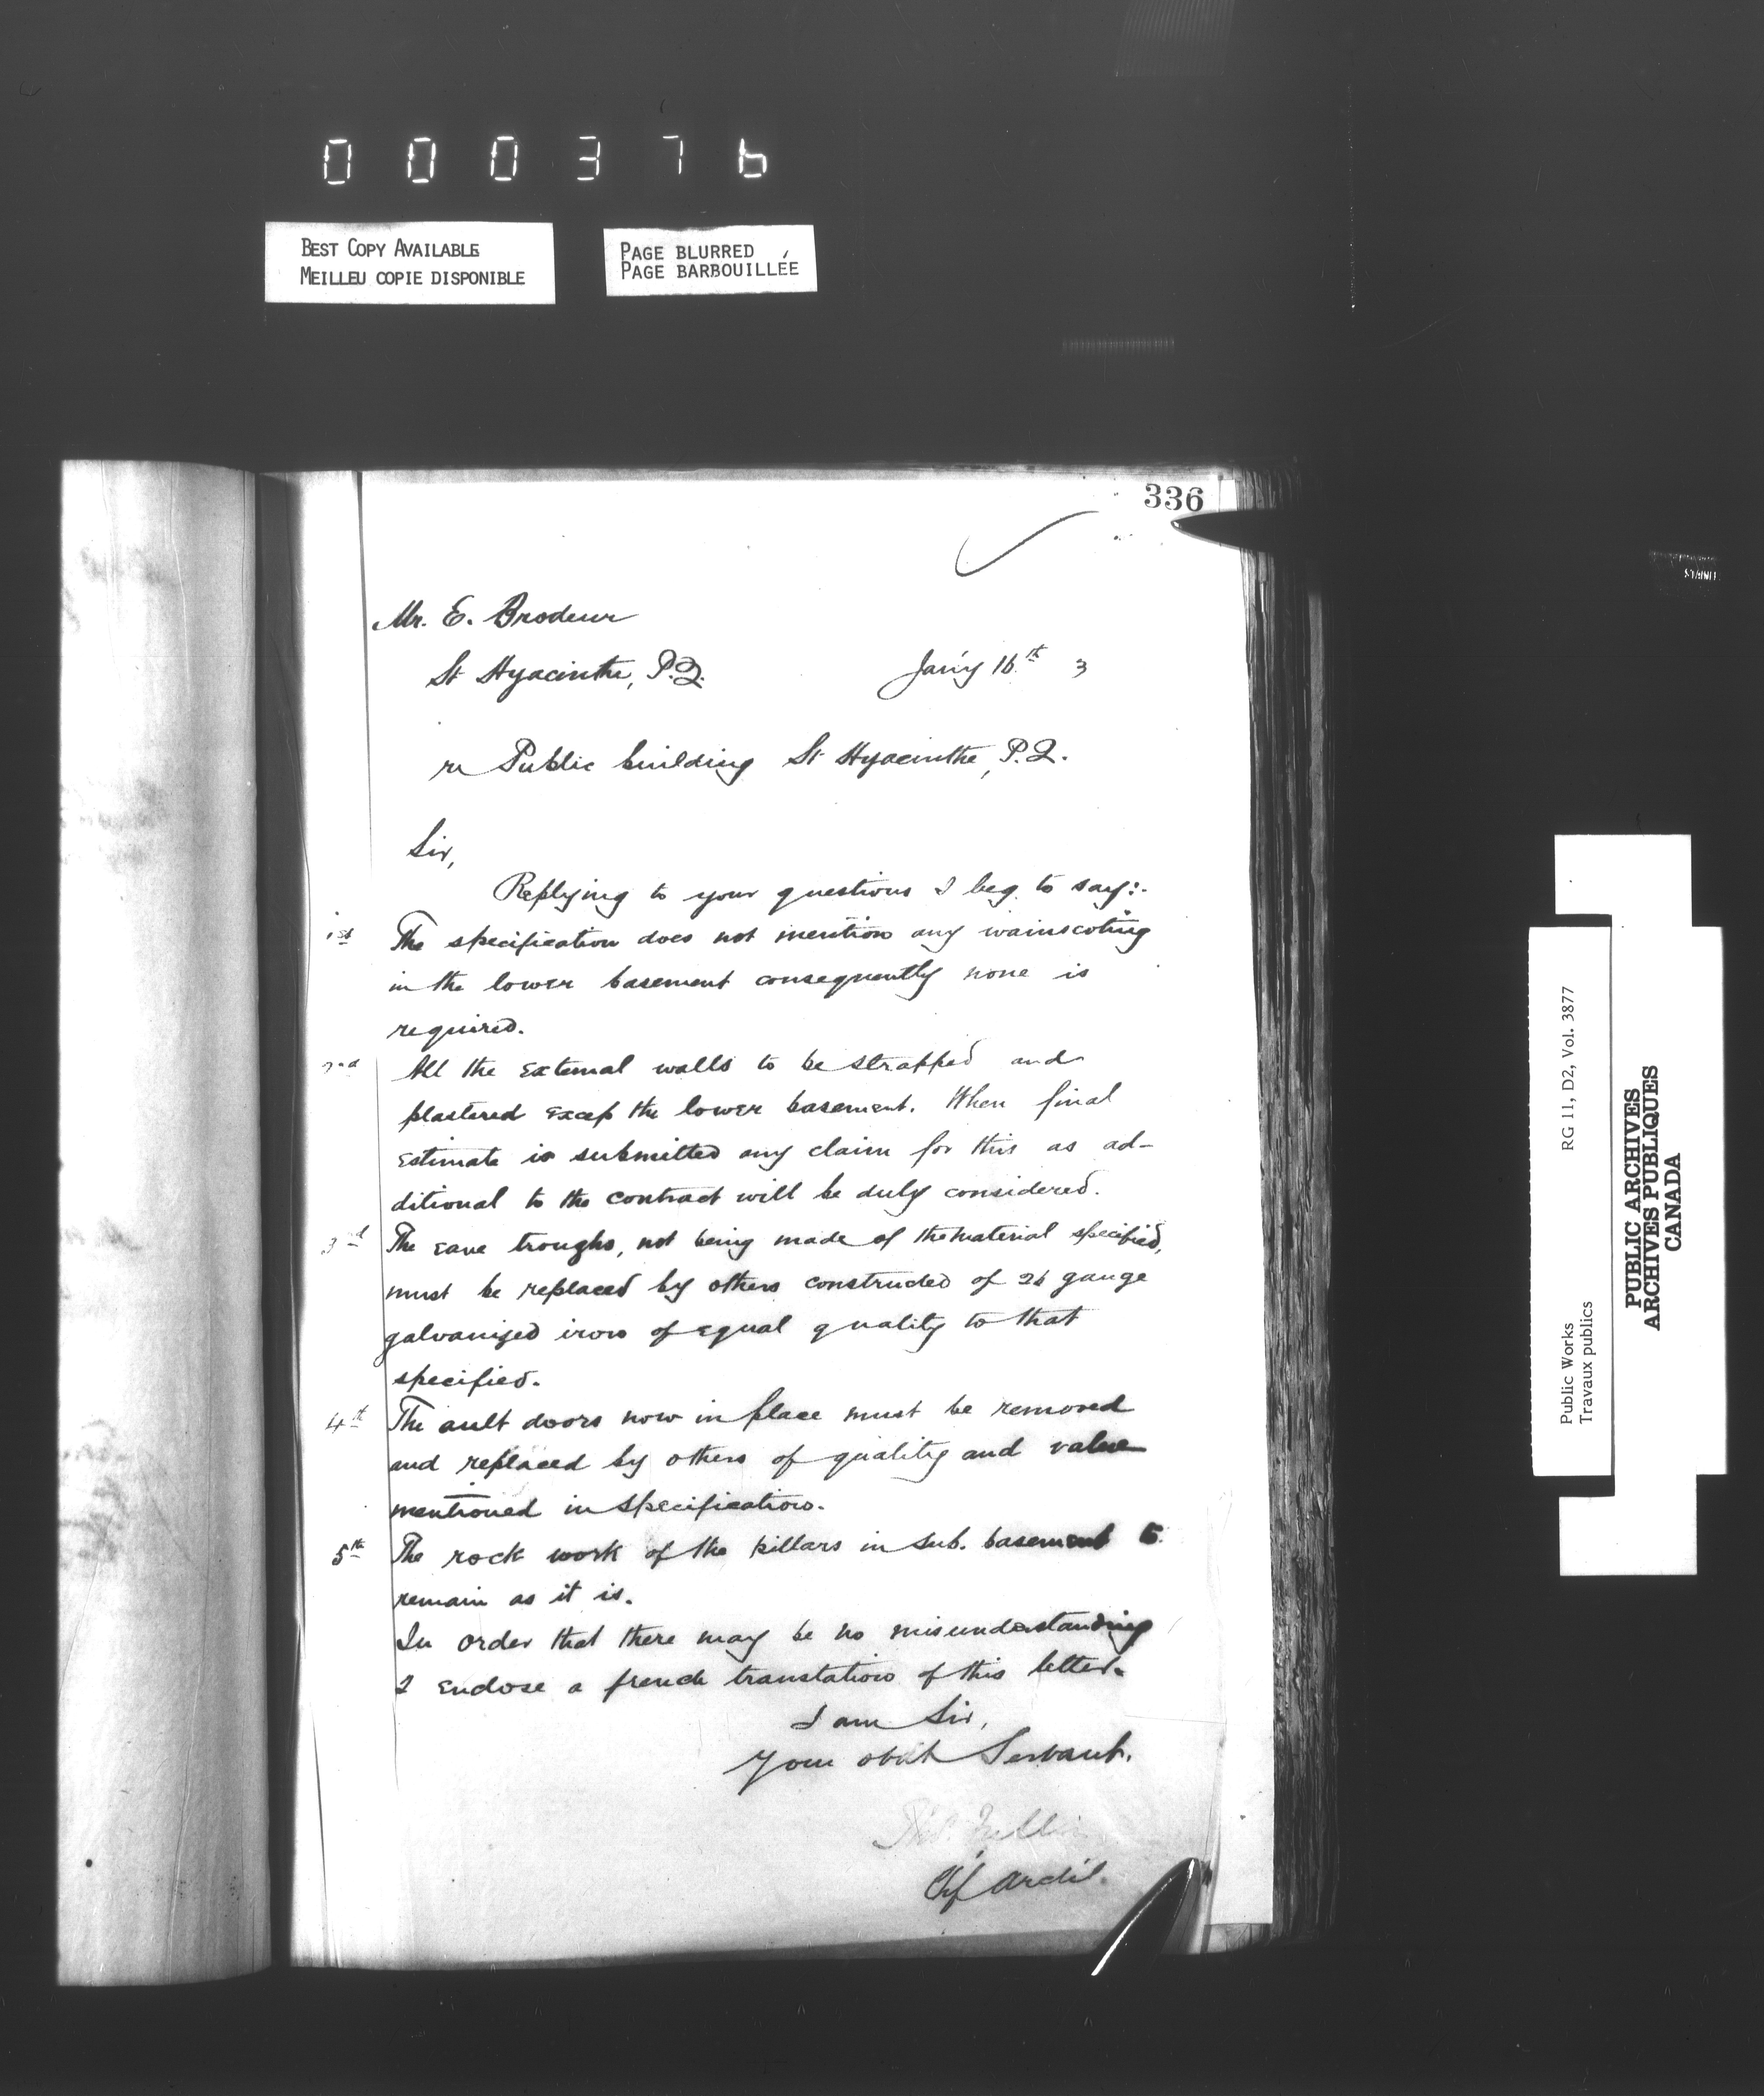 000376
BEST COPY AVAILABLE
MEILLEU COPIE DISPONIBLE
PAGE BLURRED
PAGE BARBOUILLÉE
336
Mr. E. Brodeur
St Hyacinthe, P.Q.
Jan'y 16th 3
re Public building St Hyacinthe, P.Q.
Sir,
Replying to your questions I beg to say:-
1st The specification does not mention any wainscoting
in the lower basement consequently none is
required.
2nd All the external walls to be strapped and
plastered excep the lower basement. When final
estimate is submitted any claim for this as ad-
ditional to the contract will be duly considered.
3rd The eave troughs, not being made of the material specified,
must be replaced by others constructed of 26 gauge
galvanized iron of equal quality to that
specified.
4th The ault doors now in place must be removed
and replaced by others of quality and value
mentioned in specification.
5th The rock work of the pillars in sub. basement to
remain as it is.
In order that there may be no misunderstanding
I enclose a french translation of this letter.
I am Sir,
Your obdt Servant.
Thos. Fuller
Chf Archt.
RG 11, D2, Vol. 3877
Public Works
Travaux publics
PUBLIC ARCHIVES
ARCHIVES PUBLIQUES
CANADA